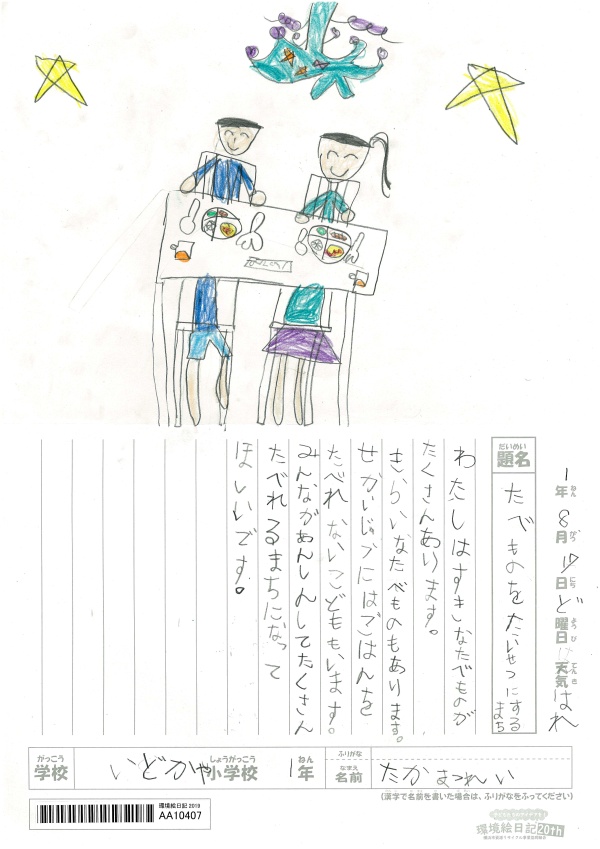 1年ねん8月がつ17日にちど曜日ようび天気てんきはれ
題名だいめい
たべものをたいせつにするまち
わたしはすきなたべものが
たくさんあります。
きらいなたべものもあります。
せかいじゅうにはごはんを
たべれないこどももいます。
みんながあんしんしてたくさん
たべれるまちになって
ほしいです。
学校がっこう いどがや小学校しょうがっこう 1年ねん
ふりがな
名前なまえ たかまつれい
(漢字で名前を書いた場合は、ふりがなをふってください)
環境絵日記 2019
AA10407
環境絵日記20th